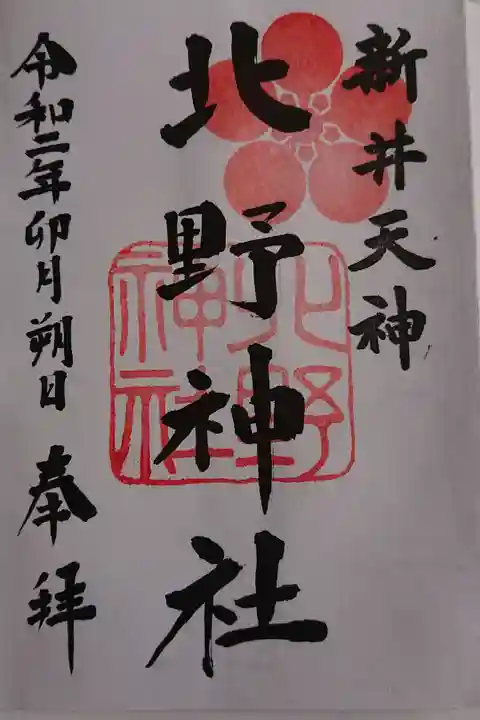 新井天神
北野神社
令和二年卯月朔日 奉拝
北野
神社